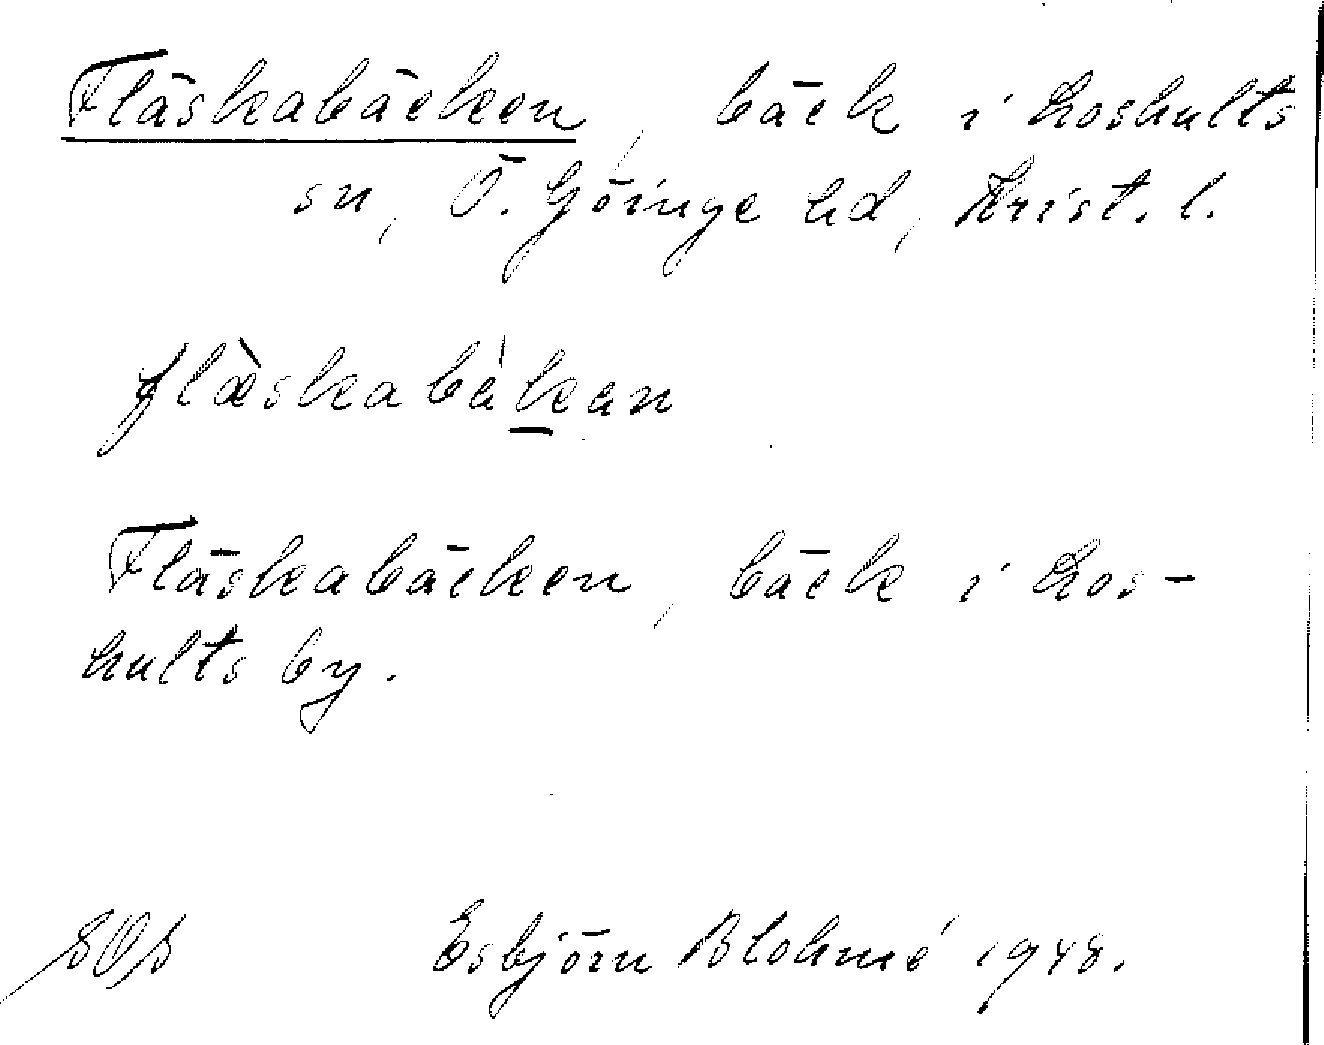 Fläskabäcken, bäck i Loshults
sn, Ö. Göinge hd, Krist. l.
flæ̀skabákan
Fläskabäcken, bäck i Los-
hults by.
Esbjörn Blohmé 1948.